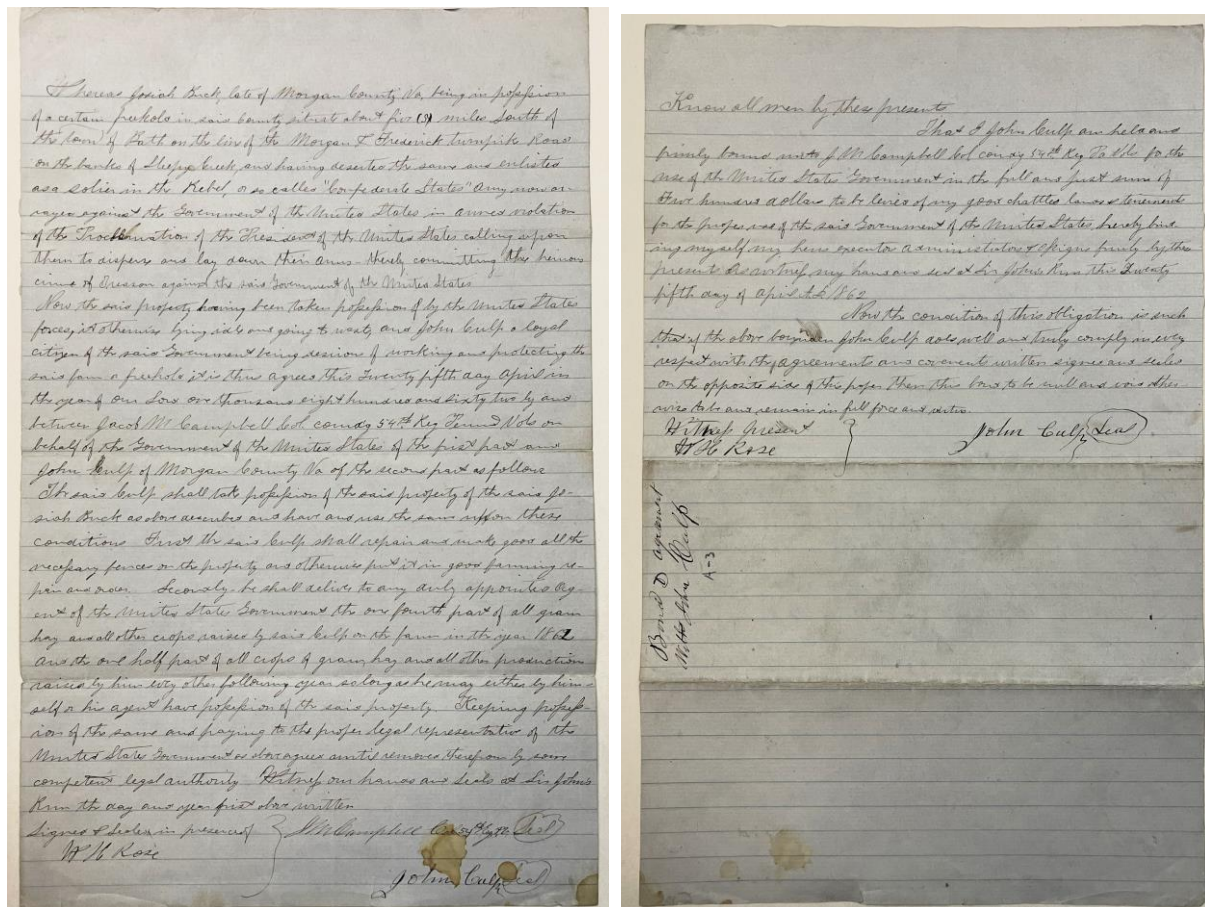 Whereas Josiah Buck, late of Morgan County Va, being in possession
of a certain freehold in said County situate about five (5) miles South of
the town of Bath on the line of the Morgan & Frederick turnpike Road
on the banks of Sleepy Creek, and having deserted the same and enlisted
as a soldier in the Rebel, or so called "Confederate States" Army now ar-
rayed against the Government of the United States in armed violation
of the Proclamation of the President of the United States calling upon
them to disperse and lay down their arms - thereby committing the heinous
crime of Treason against the said Government of the United States
Now the said property having been taken possession of by the United States
forces, it otherwise lying idle and going to waste, and John Culp a loyal
citizen of the said Government being desirous of working and protecting the
said farm or freehold it is thus agreed this Twenty fifth day April in
the year of our Lord one thousand eight hundred and sixty two by and
between Jacob M Campbell Col. comdg 54th Reg Penna Vols on
behalf of the Government of the United States of the first part and
John Culp of Morgan County Va of the second part as follows
The said Culp shall take possession of the said property of the said Jo-
siah Buck as above described and have and use the same upon these
conditions First the said Culp shall repair and make good all the
necessary fences on the property and otherwise put it in good farming re-
pair and order. Secondly - he shall deliver to any duly appointed Ag-
ent of the United State Government the one fourth part of all grain
hay and all other crops raised by said Culp on the farm in the year 1862
and the one half part of all crops of grain, hay and all other productions
raised by him every other following year so long as he may either by him-
self or his agent have possession of the said property. Keeping posses-
sion of the same and paying to the proper legal representative of the
United States Government as above agreed until removed therefrom by some
competent legal authority Witness our hands and seals at Sir John's
Run the day and year first above written
Signed & Sealed in presence of J M Campbell Col 54th Reg PV Seal
W H Rose
John Culp Seal
Know all men by these presents
That I John Culp am held and
firmly bound unto J. M. Campbell Col comdg 54th Reg Pa Vols for the
use of the United States Government in the full and just sum of
Five hundred dollars to be levied of my goods chattles lands & tenements
for the proper use of the said Government of the United States, hereby bind-
ing myself my heirs executors administrators & assigns firmly by these
present As witness my hand and seal at Sir John's Run this Twenty
fifth day of April AD 1862
Now the condition of this obligation is such
that if the above bounden John Culp does well and truly comply in every
respect with the agreement and covenant written signed and sealed
on the opposite side of this paper Then this bond to be null and void other
wise to be and remain in full force and virtue.
Witness present John Culp Seal
W H Rose
Bond & agreement
With John Culp
A-3